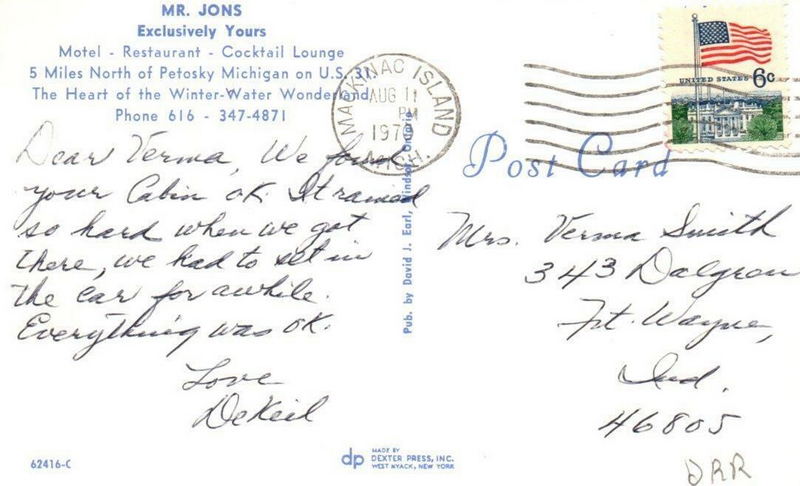 MR. JONS
Exclusively Yours
Motel - Restaurant - Cocktail Lounge
5 Miles North of Petosky Michigan on U.S. 31
The Heart of the Winter-Water Wonderland
Phone 616 - 347-4871
MACKINAC ISLAND
AUG 11
PM
MICH.
UNITED STATES 6c
Post Card
Dear Verma, We found
your Cabin OK. It rained
so hard when we got
there, we had to set in
the car for awhile.
Everything was OK.
Love
Pub. by David J. Earl, Windsor Ontario
Mrs. Verma Smith
343 Dalgren
Ft. Wayne,
Ind.
46805
62416-C
dp
MADE BY
DEXTER PRESS, INC.
WEST NYACK, NEW YORK